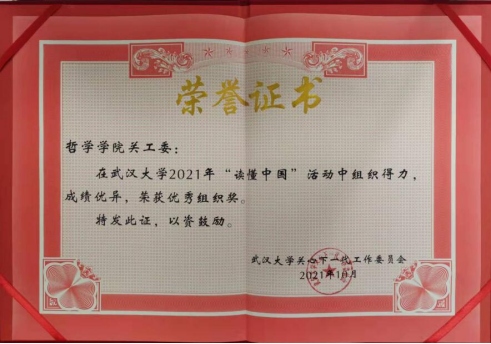 荣誉证书
哲学学院关工委：
在武汉大学2021年“读懂中国”活动中组织得力，
成绩优异，荣获优秀组织奖。
特发此证，以资鼓励。
武汉大学关心下一代工作委员会
2021年10月